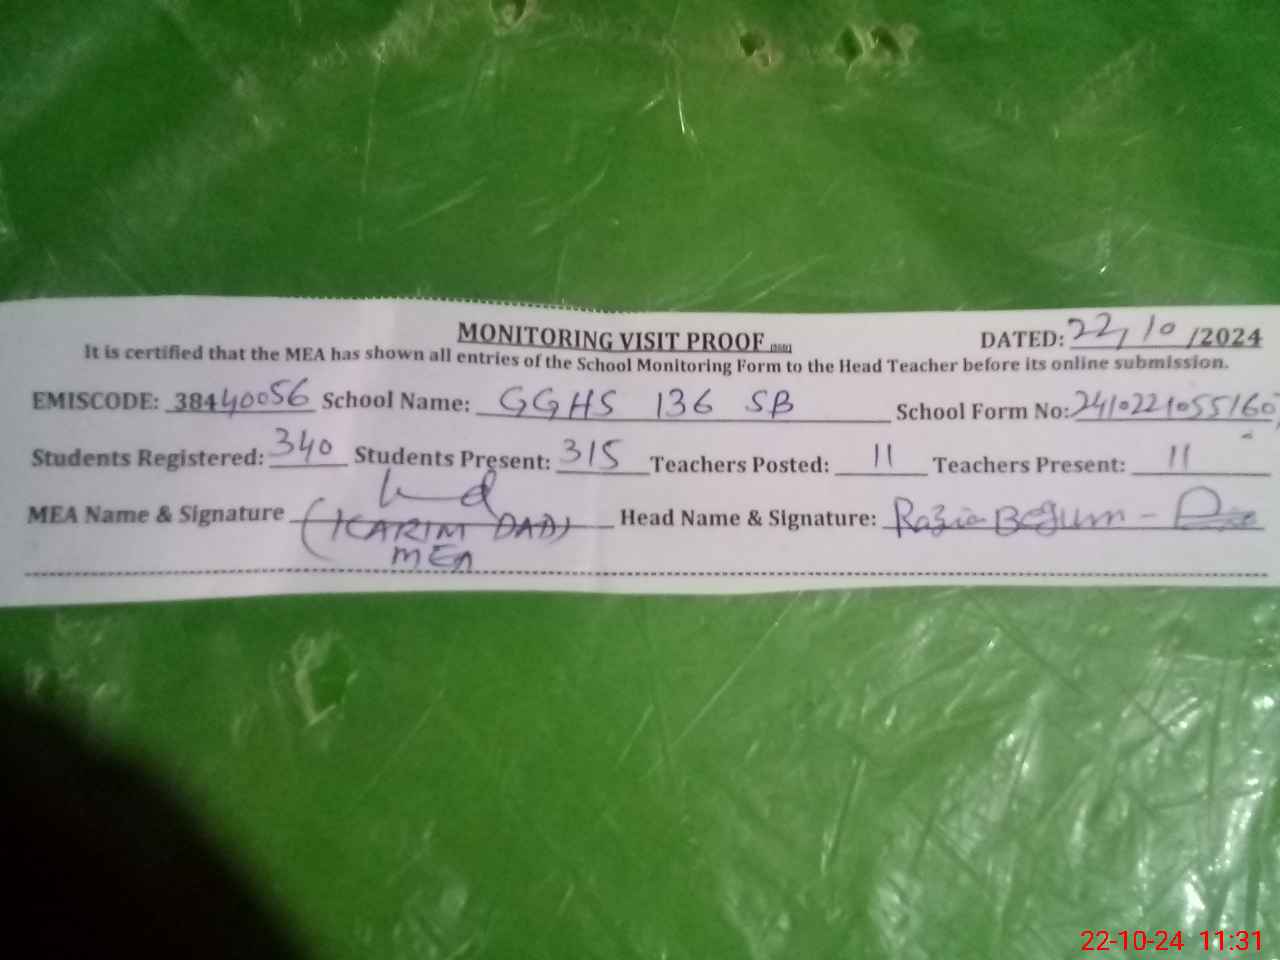 MONITORING VISIT PROOF
DATED: 22/10/2024
It is certified that the MEA has shown all entries of the School Monitoring Form to the Head Teacher before its online submission.
EMISCODE: 38440056 School Name: GGHS 136 SB School Form No: 241022105516
Students Registered: 340 Students Present: 315 Teachers Posted: 11 Teachers Present: 11
MEA Name & Signature (KARIM DAD) Head Name & Signature: Razia Begum -
MEA
22-10-24 11:31